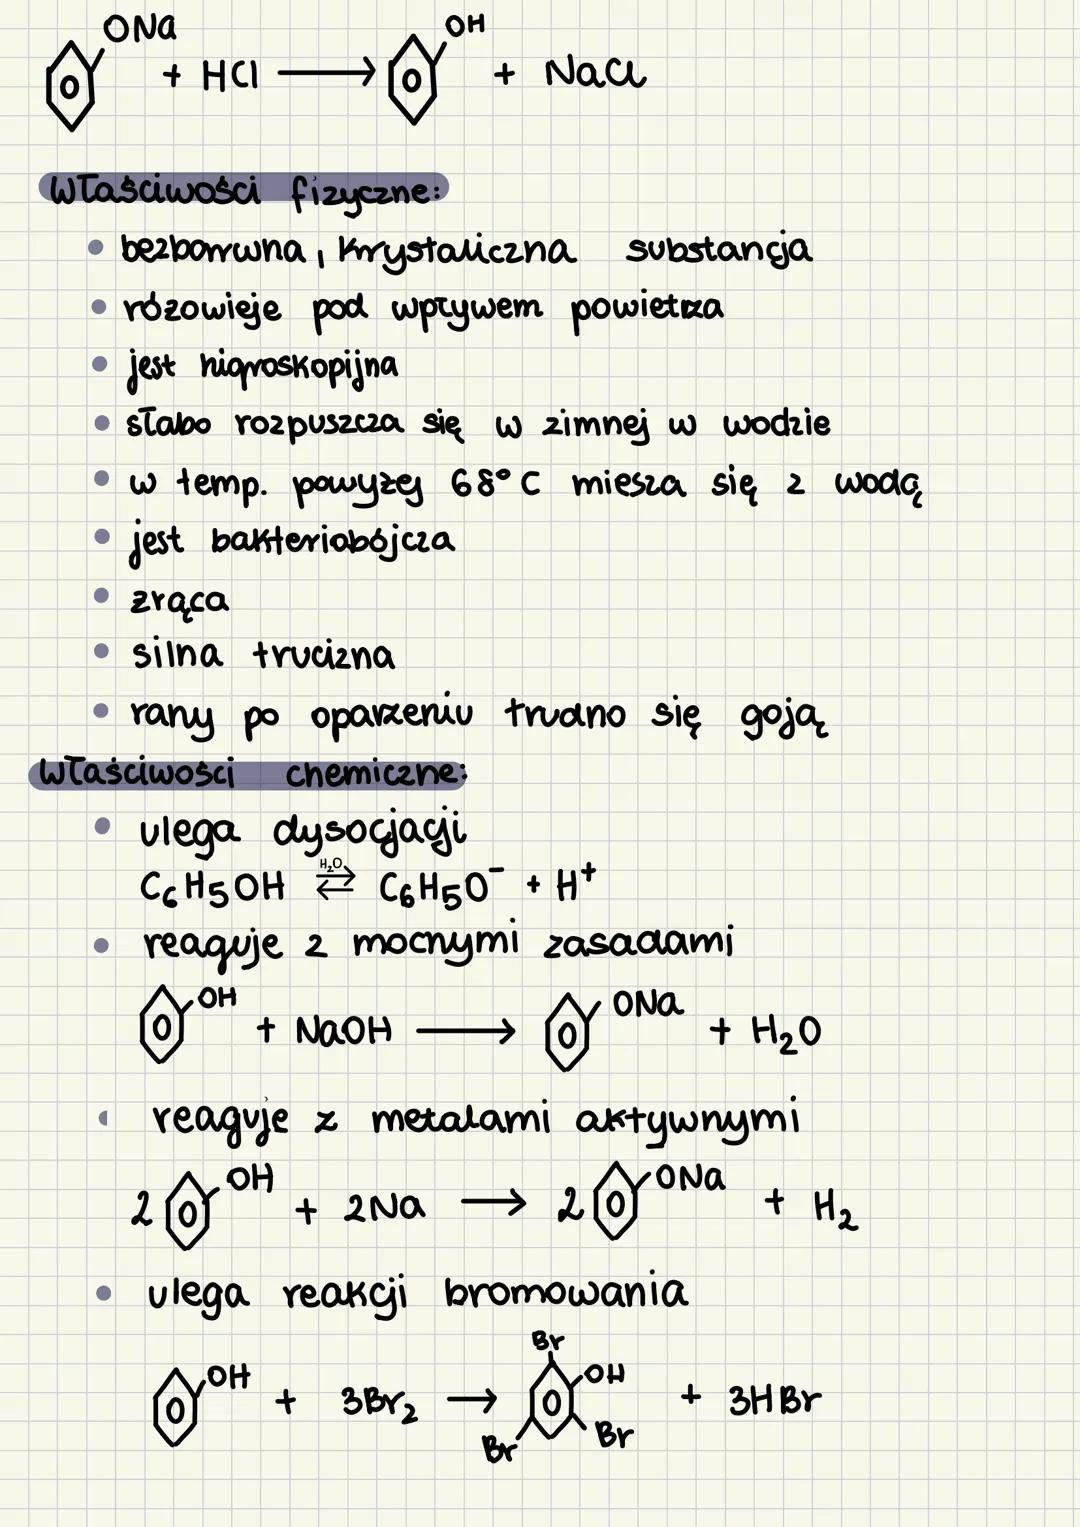 ONa + HCl ⟶ OH + NaCl
Właściwości fizyczne:
bezbarwna, krystaliczna substancja
rózowieje pod wpływem powietrza
jest higroskopijna
słabo rozpuszcza się w zimnej w wodzie
w temp. powyżej 68°C miesza się z wodą
jest bakteriobójcza
zrąca
silna trucizna
rany po oparzeniu trudno się goją
Właściwości chemiczne:
ulega dysocjacji
C₆H₅OH ⇄ H₂O C₆H₅O⁻ + H⁺
reaguje z mocnymi zasadami
OH + NaOH ⟶ ONa + H₂O
reaguje z metalami aktywnymi
2 OH + 2Na ⟶ 2 ONa + H₂
ulega reakcji bromowania
OH + 3Br₂ ⟶ Br OH Br Br + 3HBr